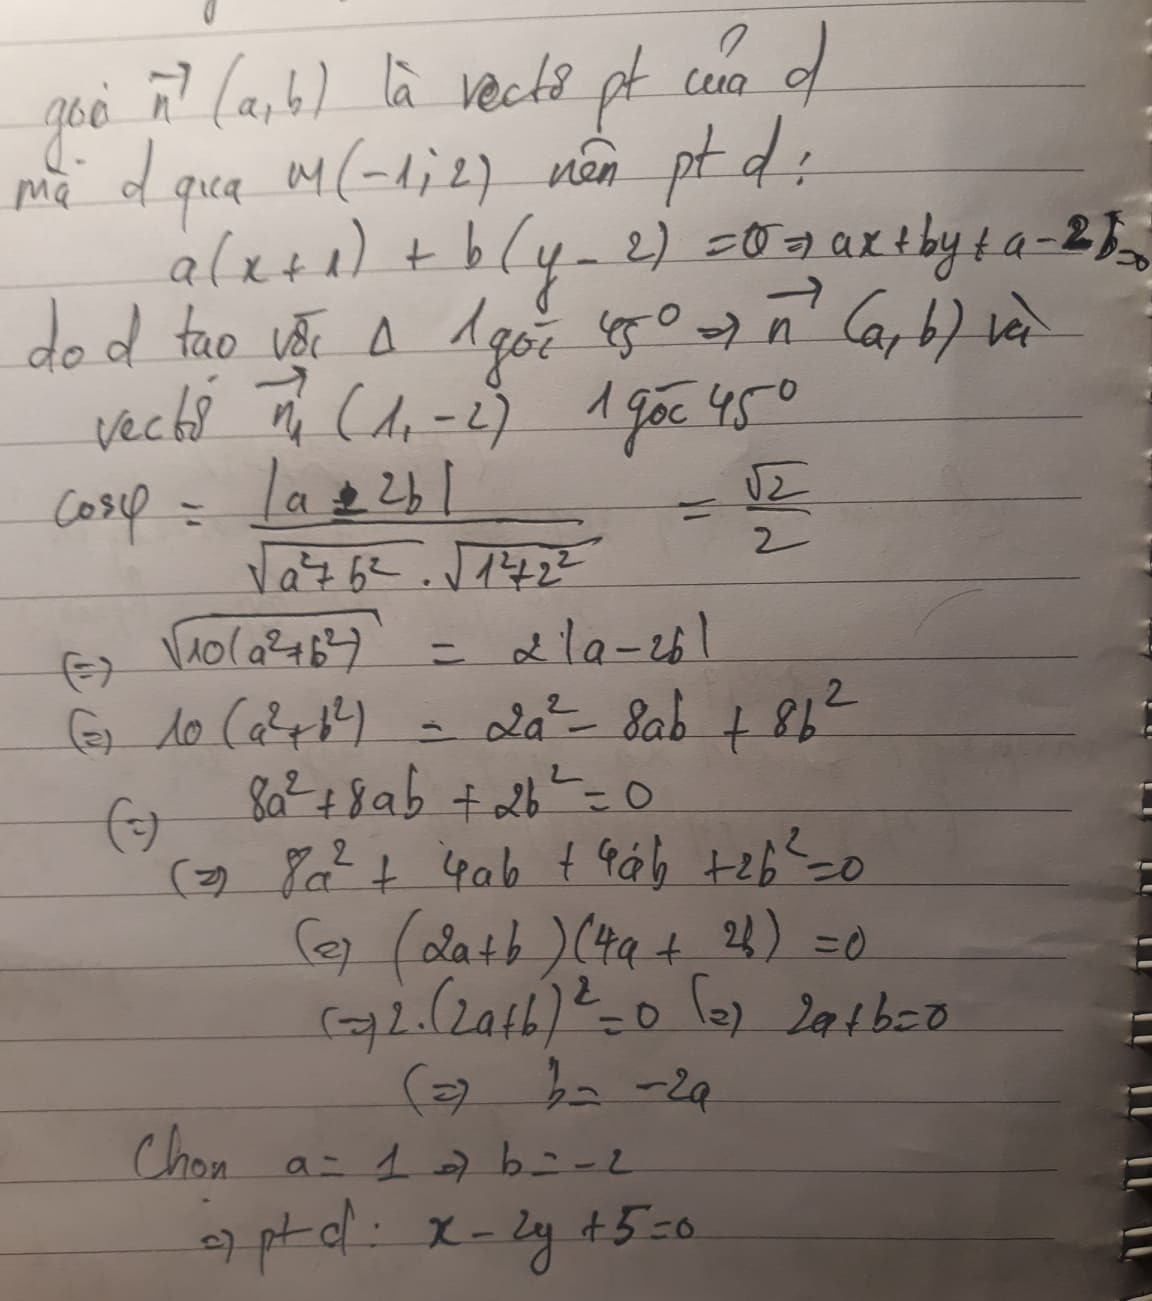 gọi n⃗ (a,b) là vectơ pt của d
mà d qua M(-1;2) nên pt d:
a(x+1) + b(y-2) =0 => ax+by+a-2b=0
do d tạo với Δ 1 góc 45° => n⃗ (a,b) và
vectơ n⃗₁ (1,-2) 1 góc 45°
cosφ = |a - 2b| / √(a²+b²) . √(1²+2²) = √2/2
(=) √10(a²+b²) = 2|a-2b|
(=) 10(a²+b²) = 2a² - 8ab + 8b²
(=) 8a²+8ab+2b²=0
(=) 8a² + 4ab + 4ab +2b²=0
(=) (2a+b)(4a+ 2b) =0
(=) 2.(2a+b)²=0 (=) 2a+b=0
(=) b= -2a
Chọn a= 1 => b=-2
=> pt d: x-2y+5=0